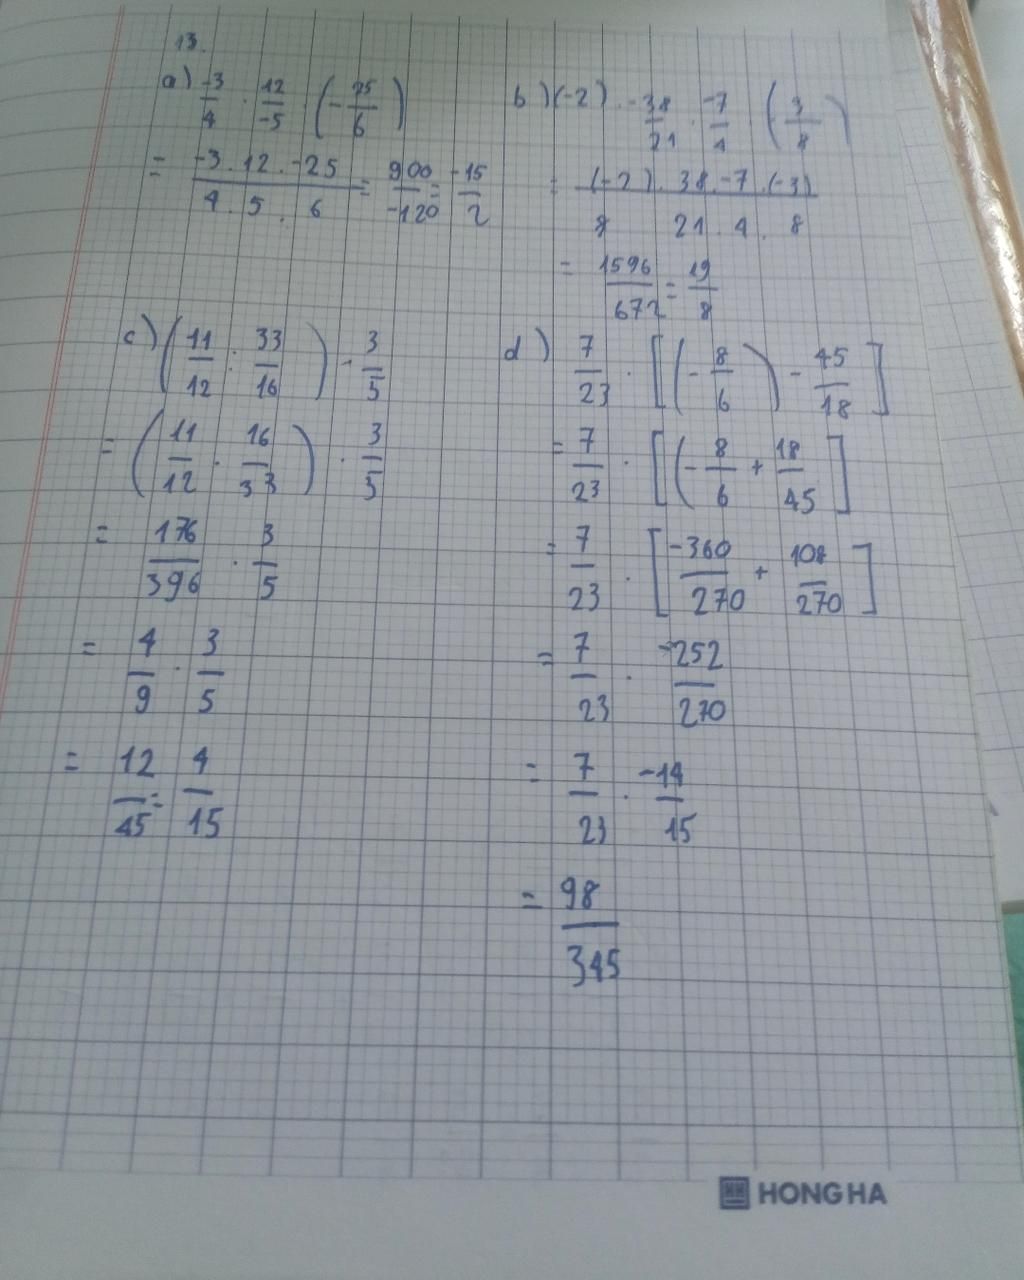 13.
a) -3/4 . 12/-5 . (-25/6)
= -3.12.-25 / 4.5.6 = 900/-120 = -15/2
b) (-2) . -38/21 . -7/4 . (-3/8)
= (-2).38.-7.(-3) / 8 21.4.8
= 1596/672 = 19/8
c) (11/12 : 33/16) . 3/5
= (11/12 . 16/33) . 3/5
= 176/396 . 3/5
= 4/9 . 3/5
= 12/45 = 4/15
d) 7/23 . [(-8/6) - 45/18]
= 7/23 . [(-8/6 + 18/45]
= 7/23 . [-360/270 + 108/270]
= 7/23 . -252/270
= 7/23 . -14/15
= 98/345
HONG HA